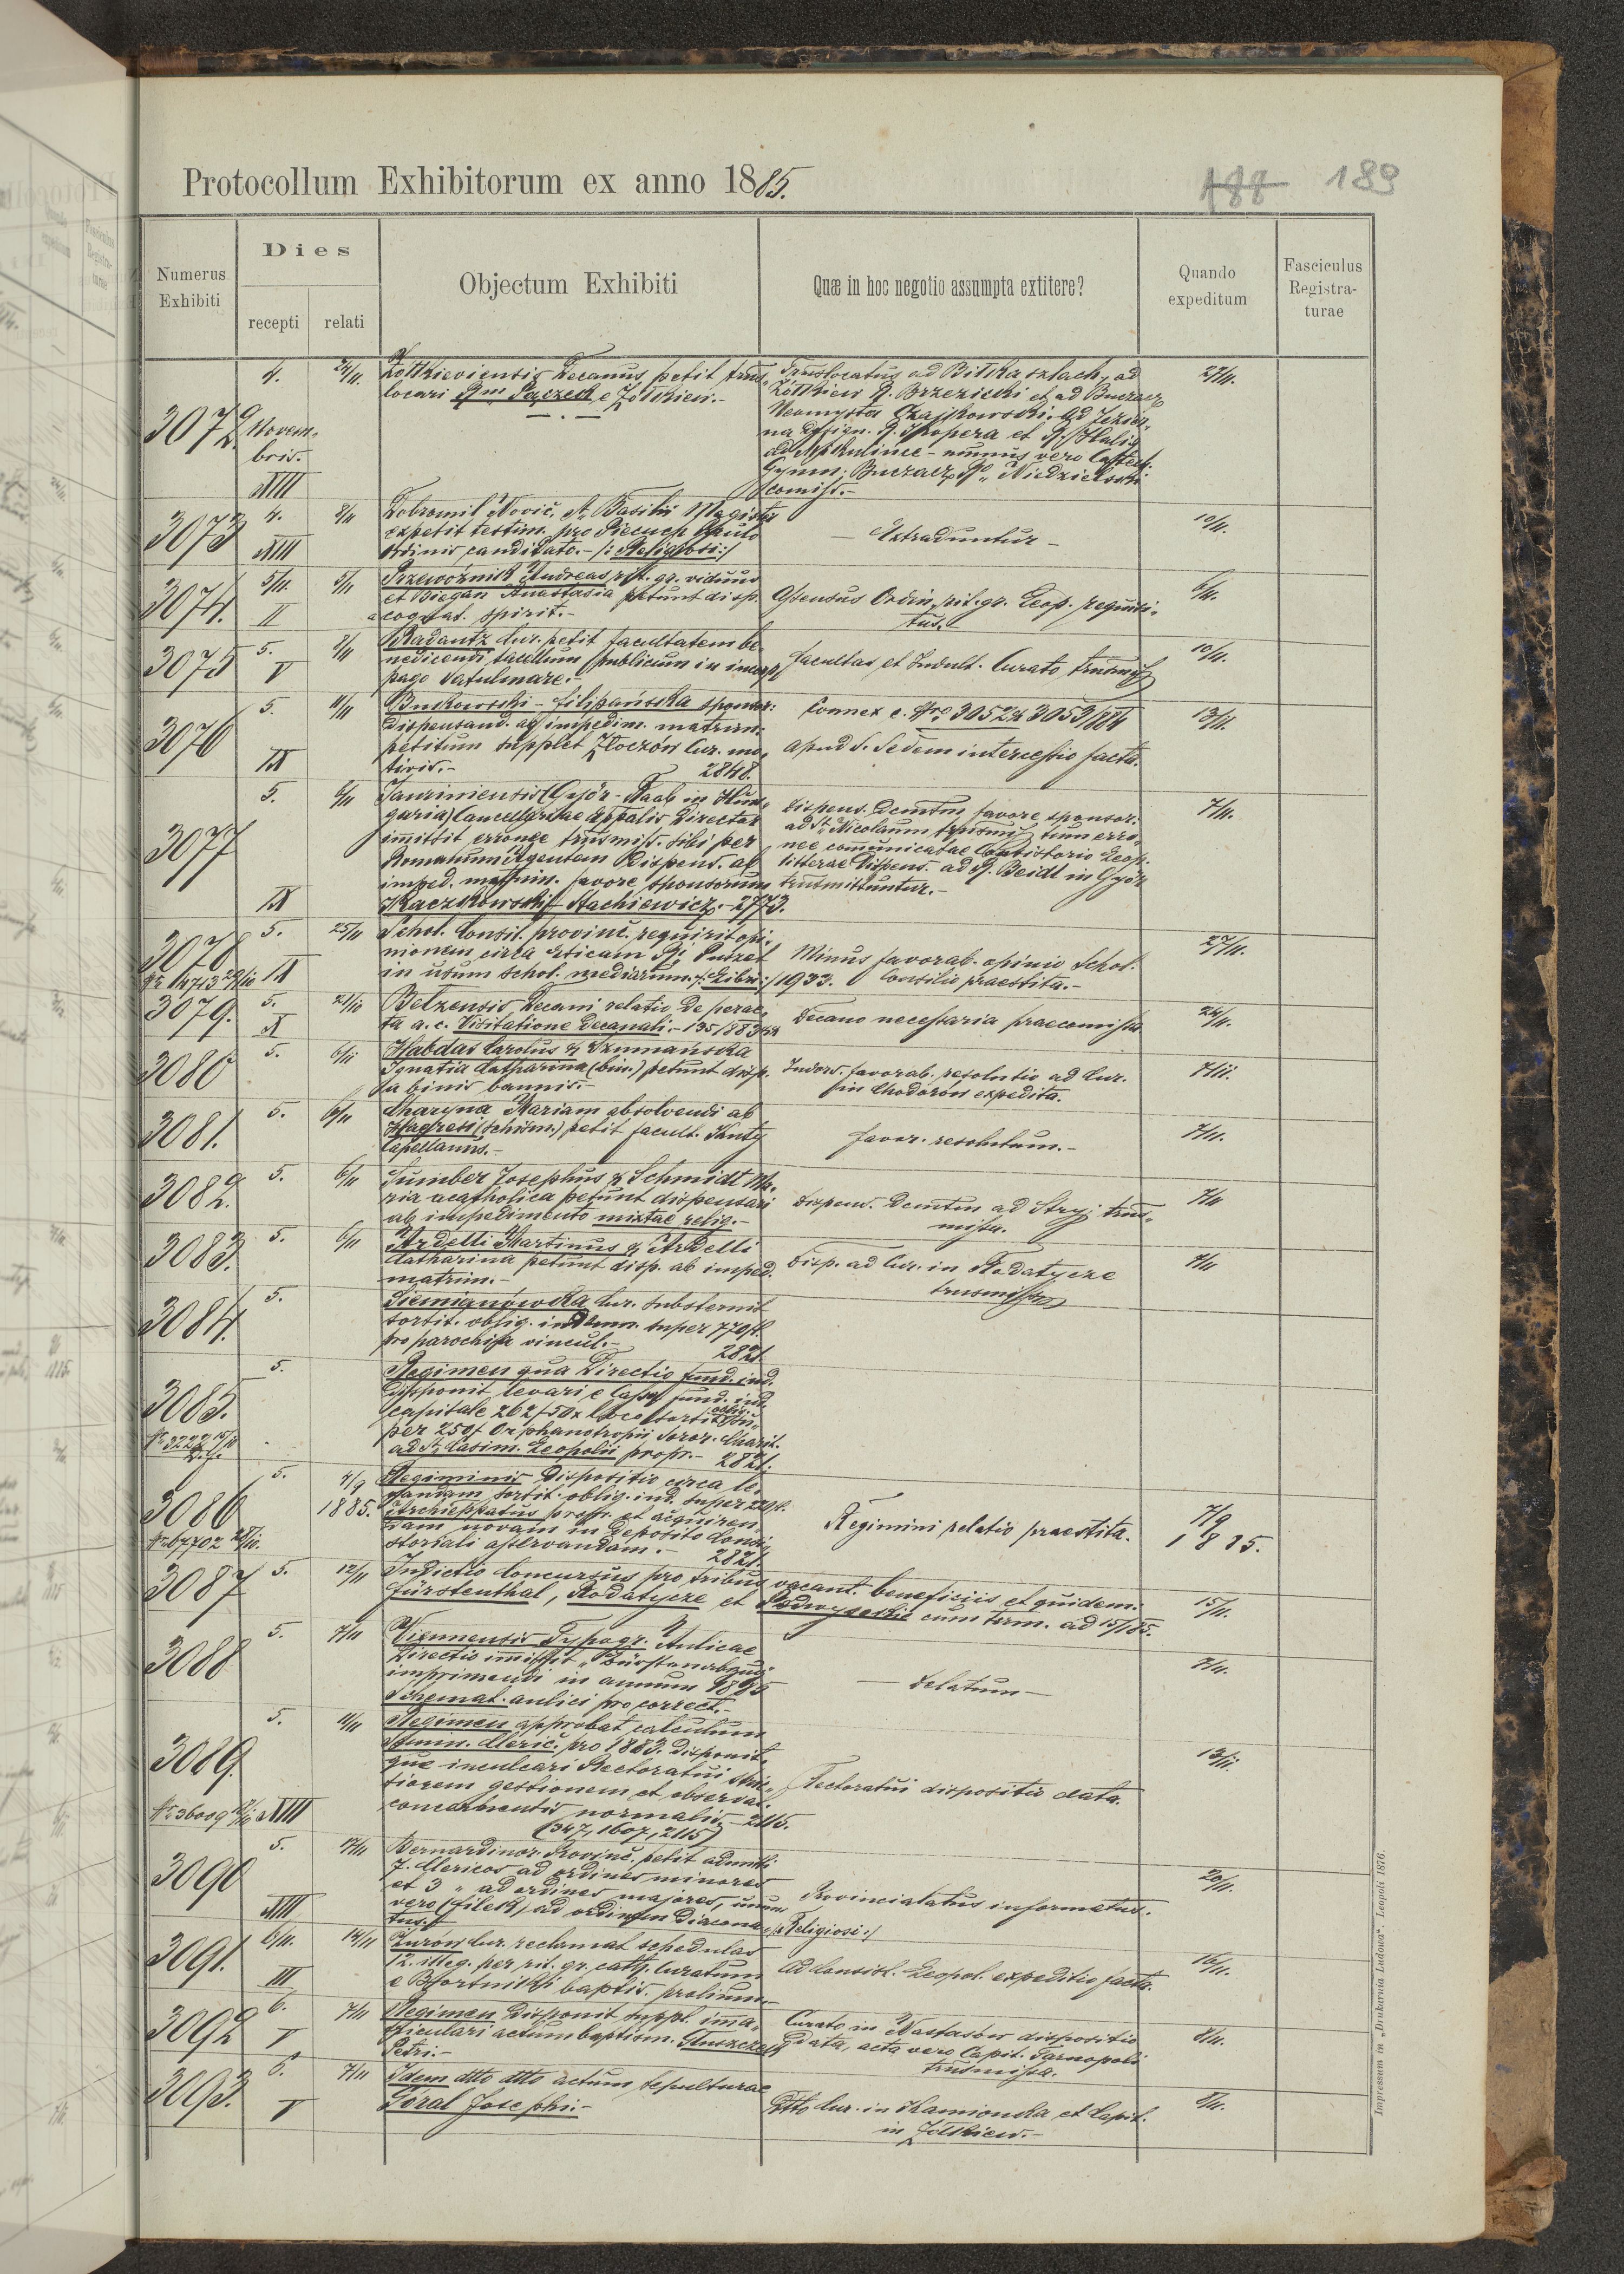 Protocollum Exhibitorum ex anno 1885.
188 189
Numerus Exhibiti
Dies
recepti
relati
Objectum Exhibiti
Quæ in hoc negotio assumpta extitere?
Quando expeditum
Fasciculus Registra-
turae
3072
4.
Novem-
bris.
XIII
24/11.
Żółkieviensis Decanus petit trans-
locari Rm Pączek e Żółkiew.-
Translocatus ad Biłka szlach., ad
Żółkiew R. Brzezicki et ad Buczacz
Neomysta Czajkowski. Ad Jezier-
na R. Kopera et R.
ad Mikulince - munus vero Catech.
Gymn. Buczacz Niedzielski
comiss.-
27/11.
3073
4.
XIII
8/11
Dobromil Novič. St. Basilii Magistr
expetit testim. pro Piecuch Paulo
Ordinis candidato.- /: Religiosi :/
- Extraduntur -
10/11.
3074.
5/11.
II
5/11
Przewoźnik Andreas rit. gr. viduus
et Biegan Anastasia petunt disp.
a cognat. spirit.-
Assensus Ordin. rit. gr. Leop. requisi-
tus.
6/11.
3075
5.
V
8/11
Radautz Cur. petit facultatem be-
nedicendi sacellum publicum in incorp.
pago Satulmare.-
Facultas et Indult. Curato transmiss.
10/11.
3076
5.
IX
11/11
Bukowski - Filipańska sponsor.
dispensand. ab impedim. matrim.
petitum supplet Złoczów Cur. mo-
tivis.- 2848.
Connex c. Nro 3052 & 3053/884
apud S. Sedem intercessio facta.
13/11.
3077
5.
IX
6/11
Jaurinensis (Györ - Raab in Hun-
garia) Cancellariae Eppalis Director
immittit erronee transmiss. sibi per
Romanum Agentem Dispens. ab
imped. matrim. favore sponsorum
Kaczkowski - Stachiewicz.- 2773.
Dispens. Demtm favore sponsor.
ad St. Nicolaum transmis. tum erro-
nee communicatae Consistorio Leop.
litterae Dispens. ad R. Beidl in Györ
transmittuntur.-
7/11.
3078
5.
IX
25/11
Schol. Consil. provinc. requirit opi-
nionem circa Eticam R. Puszet
in usum schol. mediarum. /: Libri :/ 1933.
Minus favorab. opinio Schol.
Consilio praestita.-
27/11.
3079.
5.
X
21/11
Belzensis Decani relatio de perac-
ta a.c. Visitatione Decanali.- 135/883
Decano necessaria praecomissa
24/11.
3080
5.
6/11
Habdas Carolus & Szumańska
Ignatia Catharina (bin.) petunt disp.
a binis bannis.-
Indors. favorab. resolutio ad Cur.
in Chodorów expedita.
7/11.
3081.
5.
6/11
Charyna Mariam absolvendi ab
Haeresi (schism.) petit facult. Kuty
Capellanus.-
Favor. resolutum.-
7/11.
3082.
5.
6/11
Sumber Josephus & Schmidt Ma-
ria acatholica petunt dispensari
ab impedimento mixtae relig.-
Dispens. Demtm ad Stryj trans-
missa.
7/11
3083.
5.
6/11
Ardelli Martinus & Ardelli
Catharina petunt disp. ab imped.
matrim.-
Disp. ad Cur. in Rodatycze
transmissa
7/11
3084.
5.
Siemianówka Cur. substernit
sortit. oblig. indemn. super 770 fl.
pro parochia vincul.-
2821.
3085.
5.
Regimen qua Directio fund. ind.
disponit levari e Cassa fund. ind.
capitale 262 f 50 x loco sortit. oblig. su-
per 250 f Orphanotropii Soror. Charit.
ad St. Casim. Leopolii propr.- 2821.
3086
5.
4/9
1885.
Regiminis dispositio circa le-
vandam sortit. oblig. ind. super
Archieppatus propr. et acquiren-
dam novam in Deposito Consi-
storiali asservandam.- 2821.
Regimini relatio praestita.
7/9
1885.
3087
5.
12/11
Indictio Concursus pro tribus vacant. beneficiis et quidem:
Fürstenthal, Rodatycze et Podwysokie cum term. ad 15/1 85.
15/11.
3088
5.
7/11
Viennensis Typogr. Aulicae
Directio immittit „Bürstenabzug"
imprimendi in annum 1885
Schemat. aulici pro correct.-
- Delatum -
7/11.
3089.
5.
XIII
11/11
Regimen approbat calculum
Semin. Cleric. pro 1883. disponit-
que inculcari Rectoratui stric-
tiorem gestionem et observat.
concernentis normalis.- 2115.
(347, 1607, 2115)
Rectoratui dispositio data.
13/11.
3090
5.
XIII
17/11
Bernardinor. Provinc. petit admitti
7. Clericos ad ordines minores
et 3 „ ad ordines majores, unum
vero (Filek) ad ordinem Diacona-
tus. /: Religiosi :/
Provincialatus informatus.
20/11.
3091.
6/11.
III
14/11
Żurów Cur. reclamat schedulas
12. illeg. per rit. gr. cath. Curatum
e Bortniki baptis. prolium.-
Ad Consist. Leopol. expeditio facta.
16/11.
3092
6.
V
7/11
Regimen disponit suppl. ima-
triculari actum baptism. Gruszczak
Petri.-
Curato in Nastasów dispositio
data, acta vero Capit. Tarnopoli
transmissa.
8/11.
3093.
6.
V
7/11
Idem dtto dtto actum sepulturae
Góral Josephi.-
Dtto Cur. in Kamionka et Capit.
in Żółkiew.-
8/11.
Impressum in „Drukarnia Ludowa". Leopoli 1876.